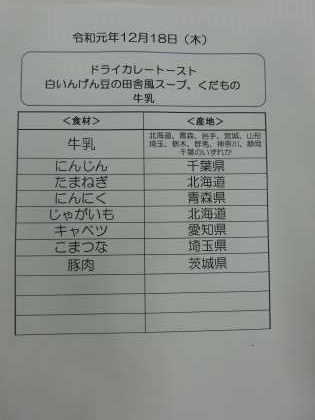 令和元年12月18日（木）
ドライカレートースト
白いんげん豆の田舎風スープ、くだもの
牛乳
＜食材＞ ＜産地＞
牛乳 北海道、青森、岩手、宮城、山形
埼玉、栃木、群馬、神奈川、静岡
千葉のいずれか
にんじん 千葉県
たまねぎ 北海道
にんにく 青森県
じゃがいも 北海道
キャベツ 愛知県
こまつな 埼玉県
豚肉 茨城県